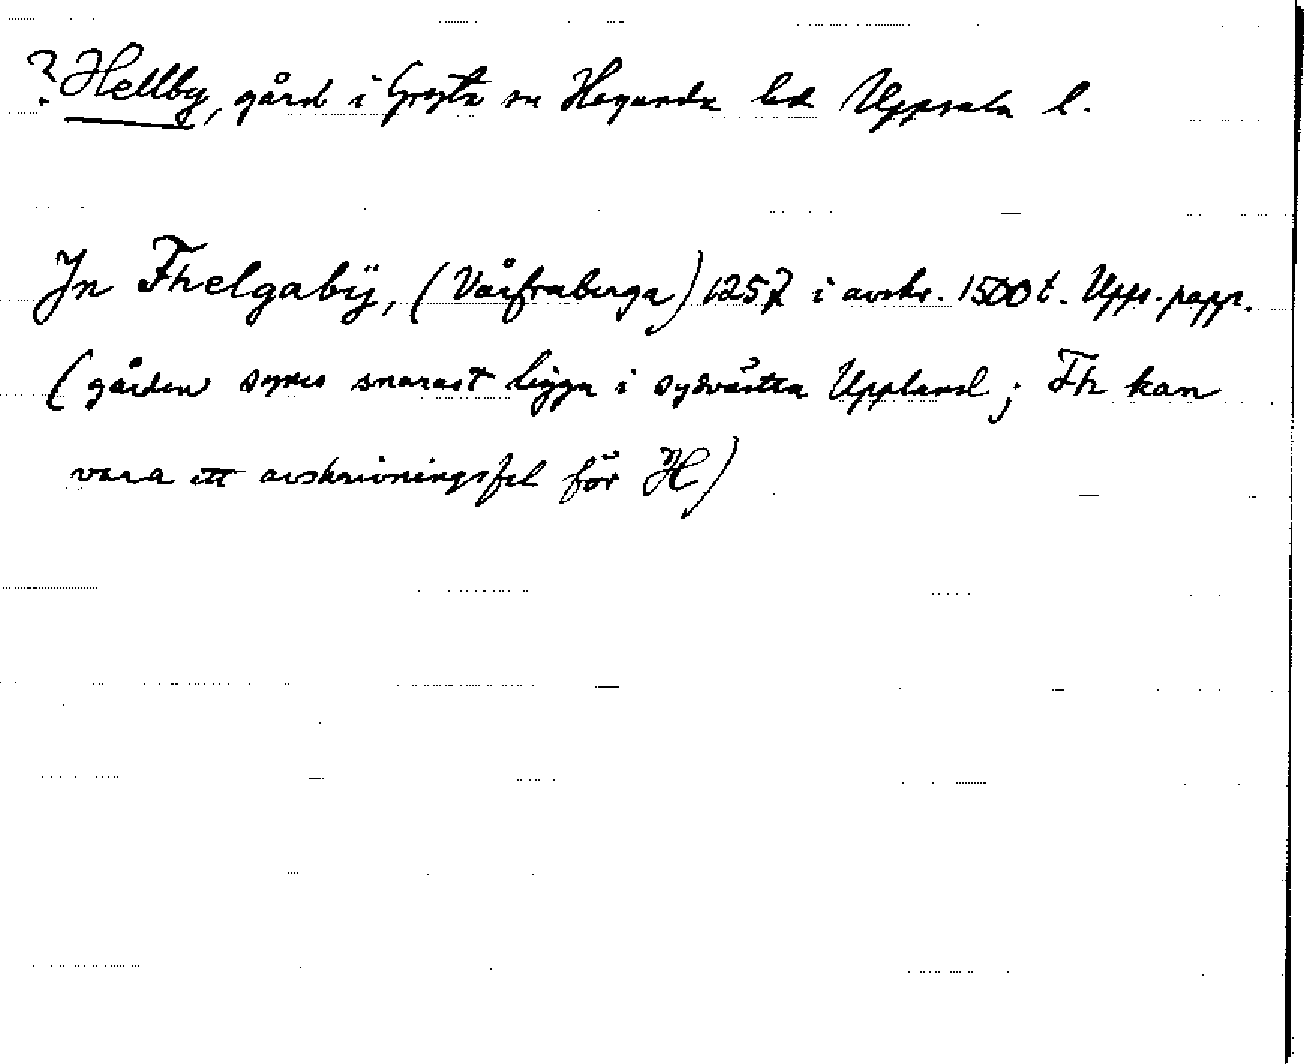 ? Hellby, gård i Gryta sn Hagunda hd Uppsala l.
In Thelgabÿ, (Vårfruberga) 1257 i avskr. 1500 t. Upps. papp.
(gården synes snarast ligga i sydvästra Uppland; Th kan
vara ett avskrivningsfel för H)